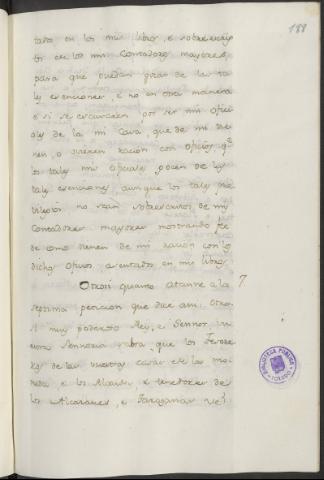 189
tada en los mis libros, e sobreescrip
tos de los mis Contadores mayores,
para que puedan gozar de las ta
les exenciones, e no en otra manera
e si se escusaren por ser mis ofici
ales de la mi Casa, que de mi tie
nen, o ovieren racion con oficios qe
los tales mis oficiales gocen de las
tales exenciones, aunque los tales pri
vilegios no sean sobreescritos de mis
Contadores mayores mostrando fee
de como tienen de mi racion con los
dichos oficios, asentados en mis libros.
Otrosi quanto atanne a la 7
septima peticion que dice ansi: Otro
si muy poderoso Rey, e Sennor, vu
estra Sennoria sabra, que los Tesore
ros de las vuestras casas de las mo
nedas, e los Alcaides, e tenedores de
los Alcazares, e Tarazanas vie
BIBLIOTECA PUBLICA
TOLEDO